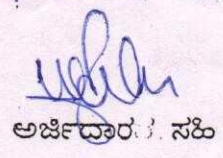 ಅರ್ಜಿದಾರರ ಸಹಿ